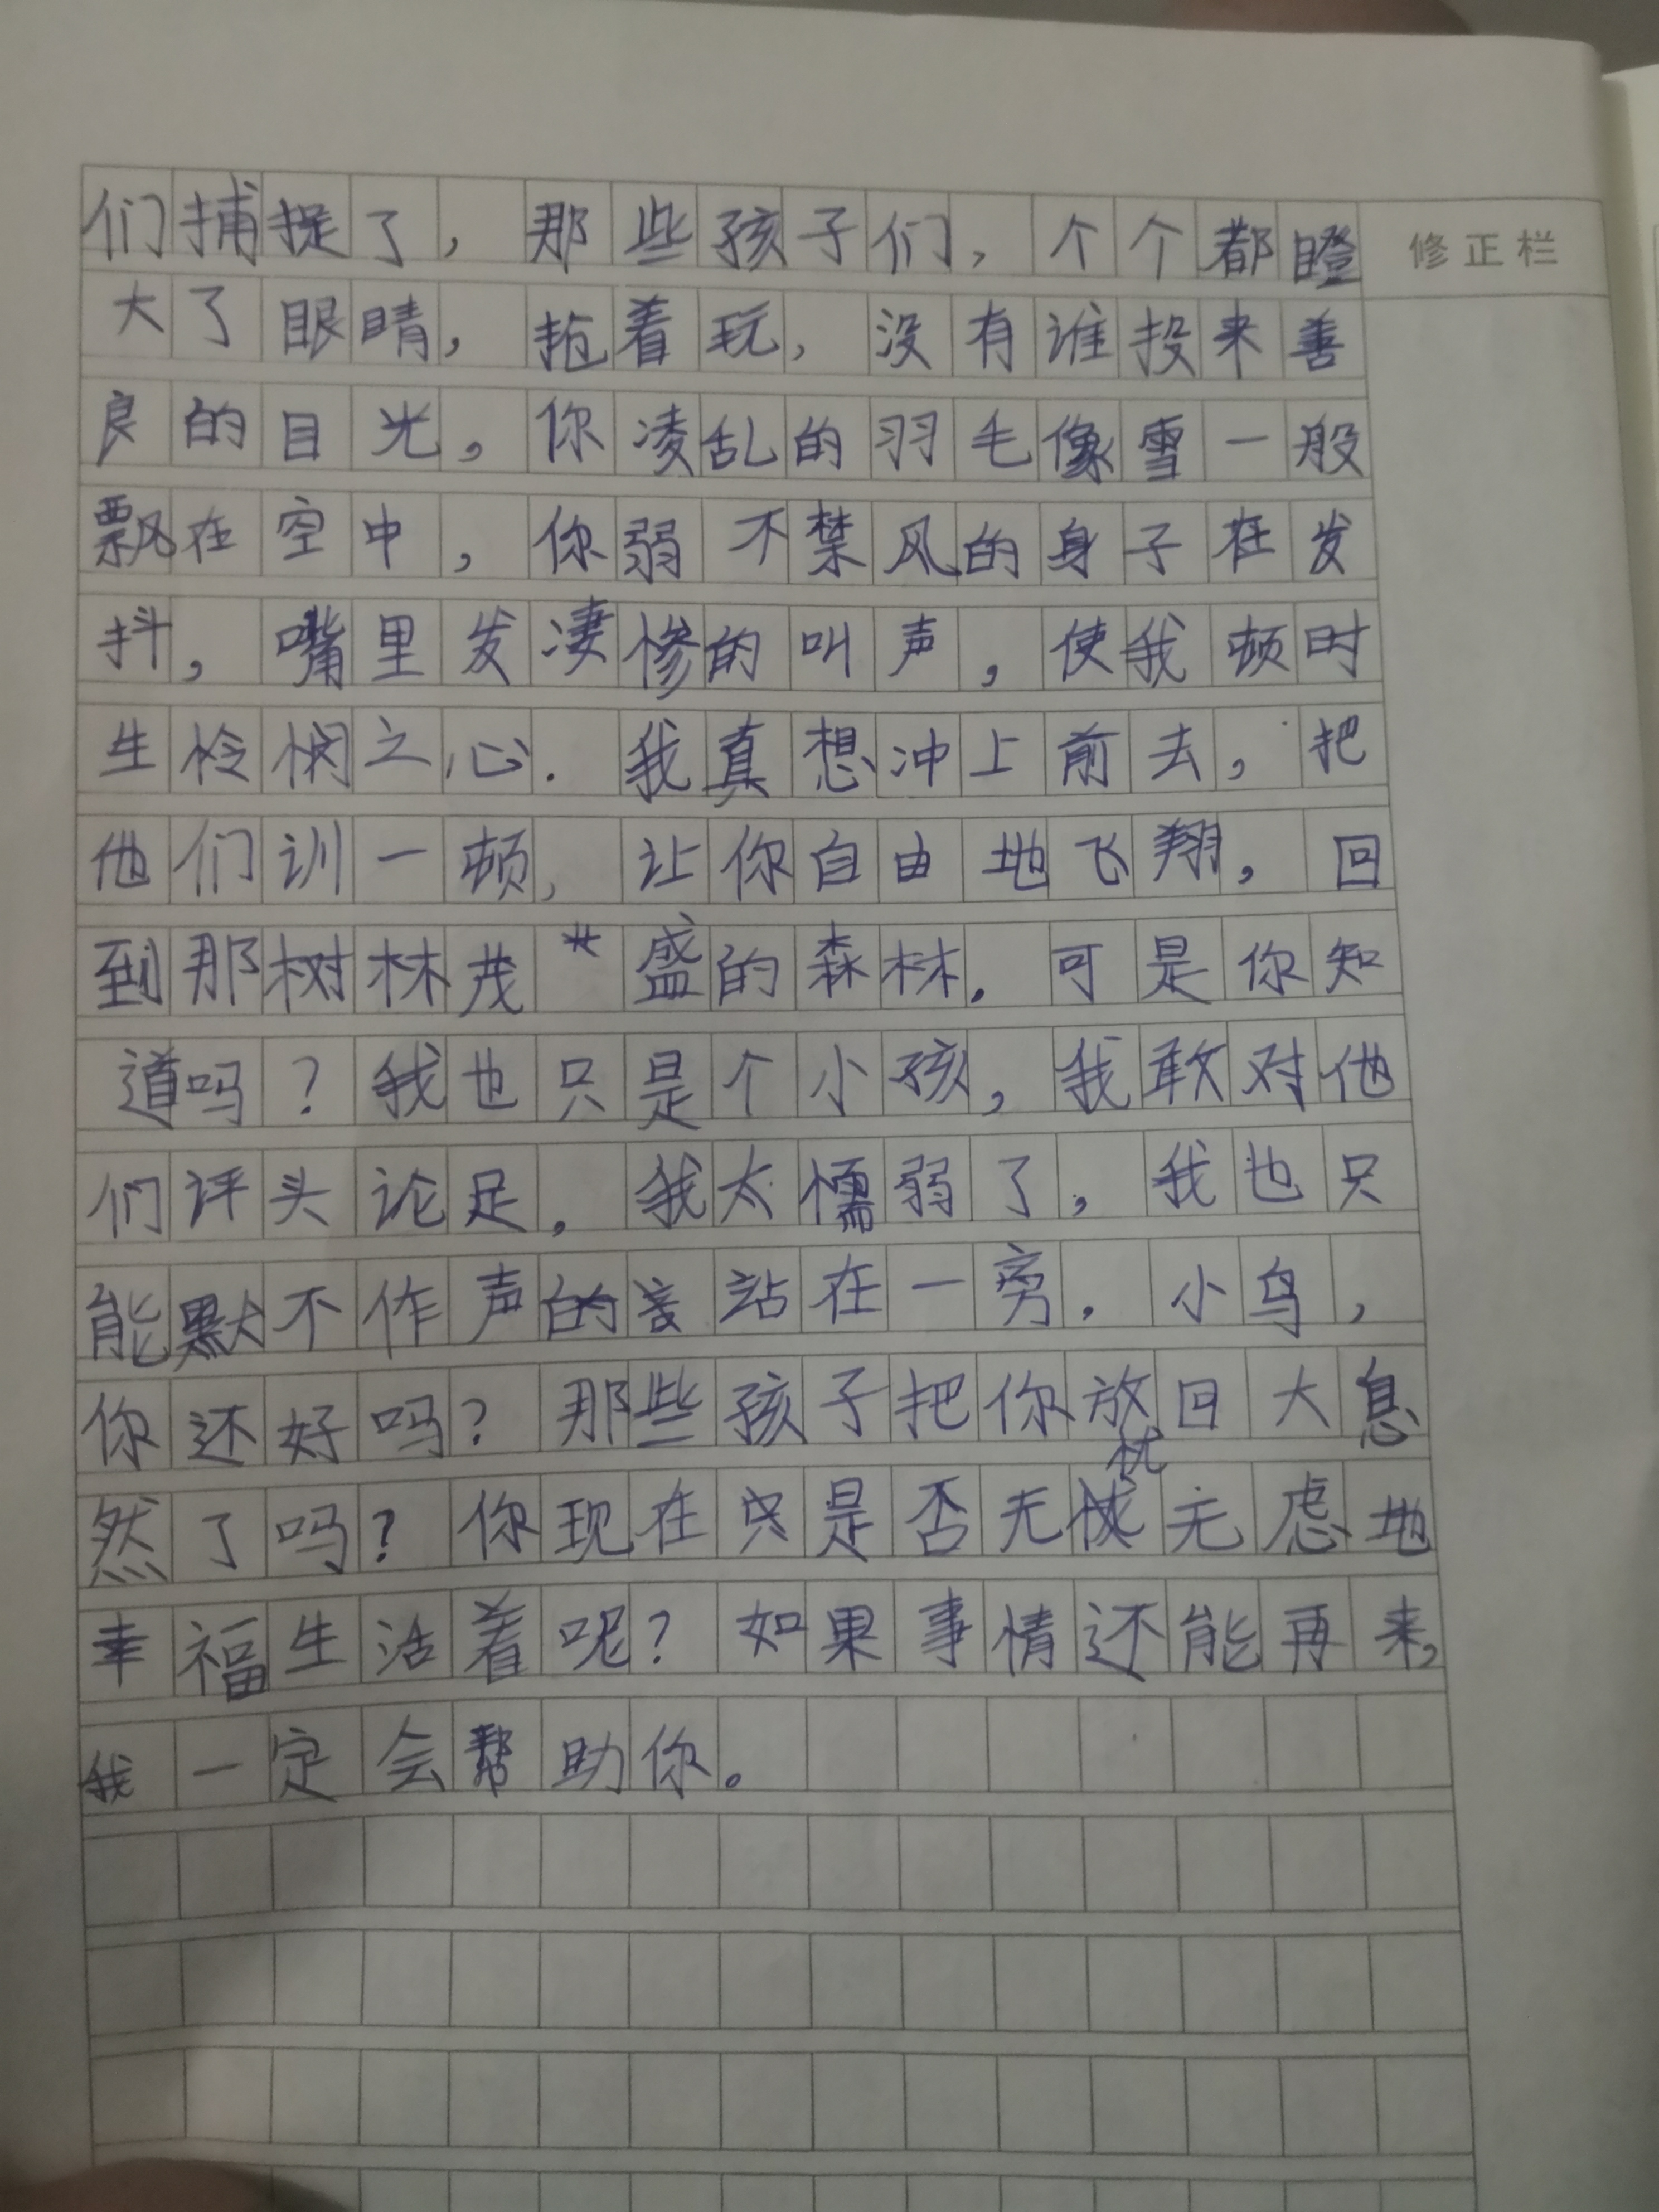 们捕捉了，那些孩子们，个个都瞪
修正栏
大了眼睛，抢着玩，没有谁投来善
良的目光。你凌乱的羽毛像雪一般
飘在空中，你弱不禁风的身子在发
抖，嘴里发凄惨的叫声，使我顿时
生怜悯之心．我真想冲上前去，把
他们训一顿，让你自由地飞翔，回
到那树林茂盛的森林．可是你知
道吗？我也只是个小孩，我敢对他
们评头论足．我太懦弱了，我也只
能默不作声的站在一旁．小鸟，
你还好吗？那些孩子把你放回大息
然了吗？你现在是否无忧无虑地
幸福生活着呢？如果事情还能再来，
我一定会帮助你。